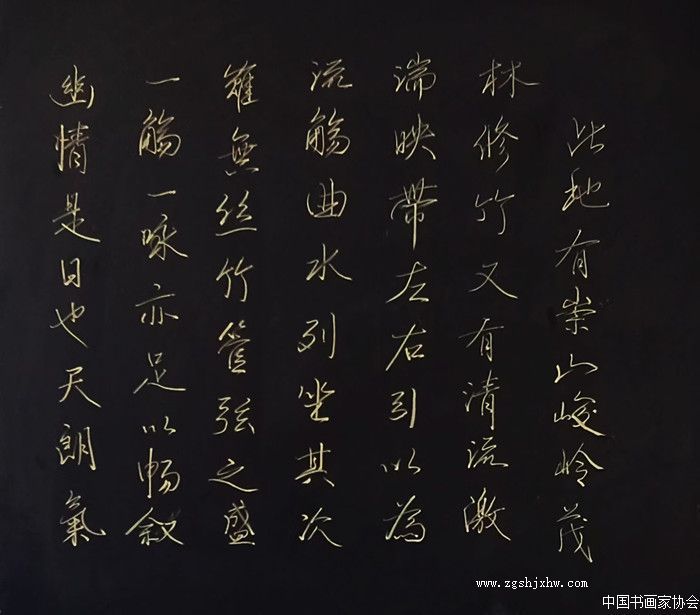 此地有崇山峻岭茂
林修竹又有清流激
湍映带左右引以為
流觞曲水列坐其次
雖無丝竹管弦之盛
一觞一咏亦足以畅叙
幽情是日也天朗氣
www.zgshjxhw.com
中国书画家协会